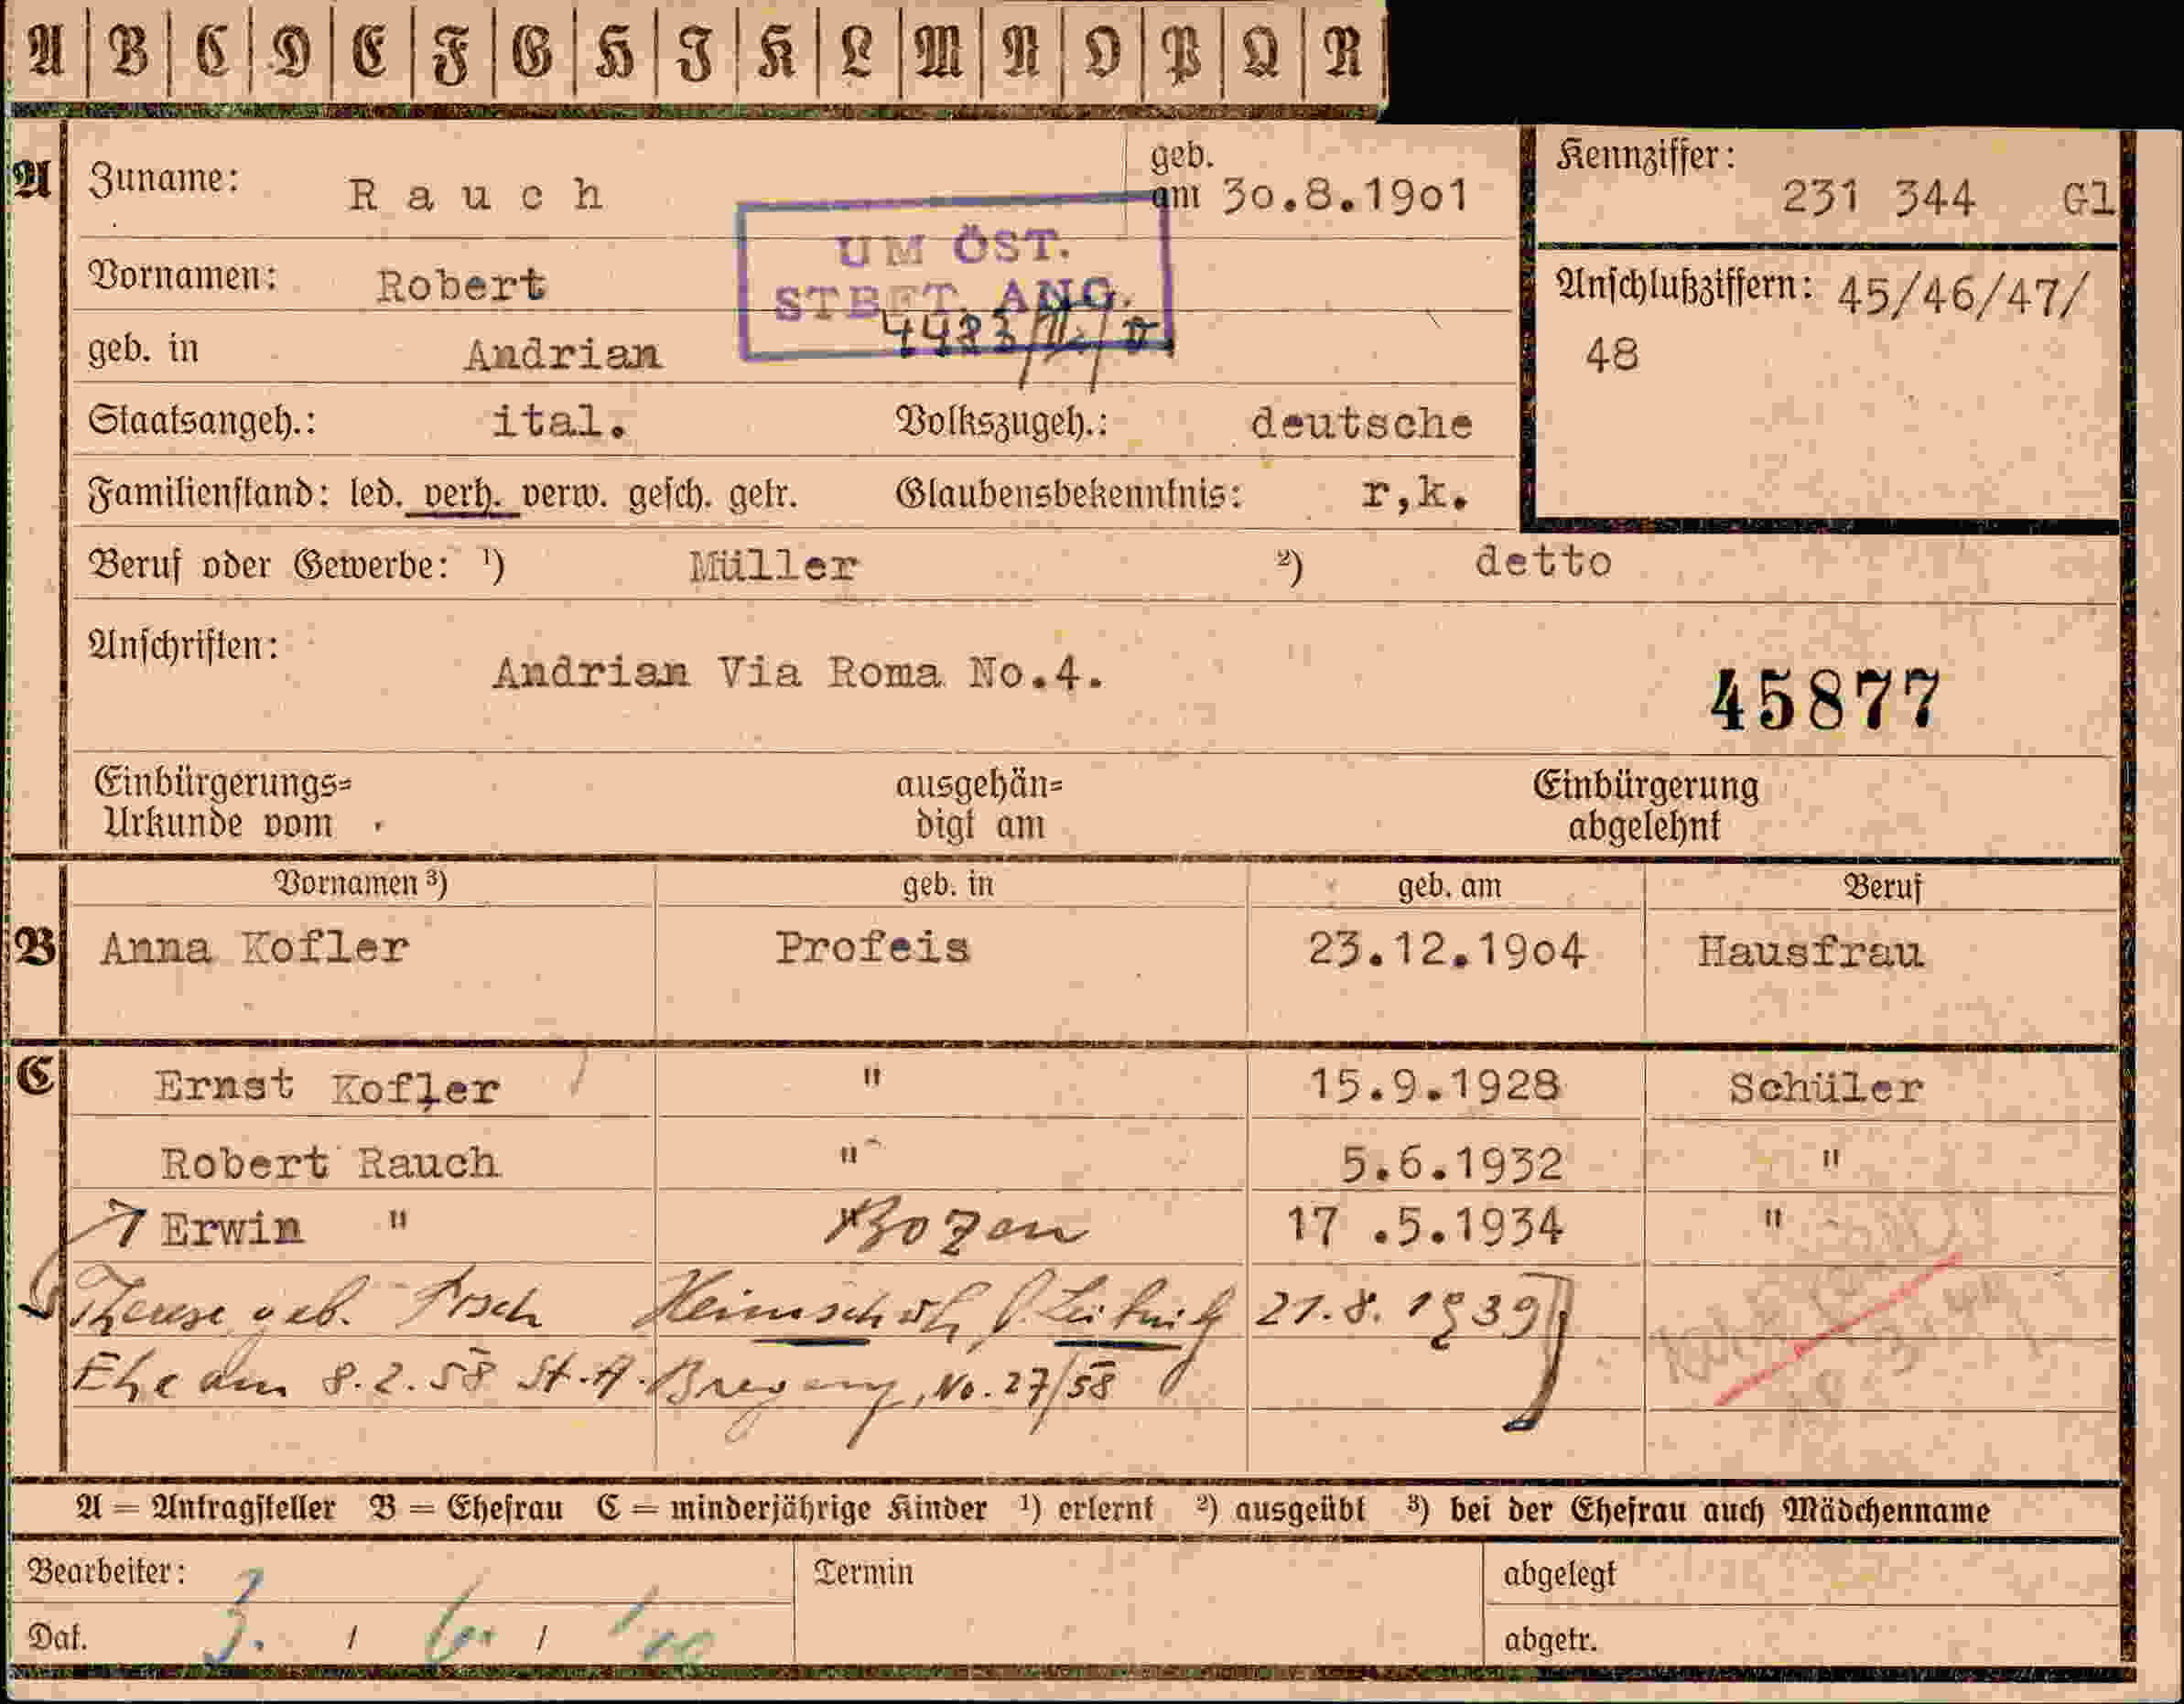 A B C D E F G H I K L M N O P Q R
A Zuname: Rauch geb. am 30.8.1901 Kennziffer: 231 344 Gl
UM ÖST.
STBET. ANG.
Vornamen: Robert Anschlußziffern: 45/46/47/
48
geb. in Andrian
Staatsangeh.: ital. Volkszugeh.: deutsche
Familienstand: led. verh. verw. gesch. getr. Glaubensbekenntnis: r,k.
Beruf oder Gewerbe: ¹) Müller ²) detto
Anschriften: Andrian Via Roma No.4. 45877
Einbürgerungs= ausgehän= Einbürgerung
Urkunde vom digt am abgelehnt
Vornamen ³) geb. in geb. am Beruf
B Anna Kofler Profeis 23.12.1904 Hausfrau
C Ernst Kofler " 15.9.1928 Schüler
Robert Rauch " 5.6.1932 "
Erwin " Bozen 17 .5.1934 "
Therese geb. 21.8.1939
Ehe am 8.2.58 St.A. Bregenz, No. 27/58
A = Antragsteller B = Ehefrau C = minderjährige Kinder ¹) erlernt ²) ausgeübt ³) bei der Ehefrau auch Mädchenname
Bearbeiter: Termin abgelegt
Dat. 3. / 6. / abgetr.